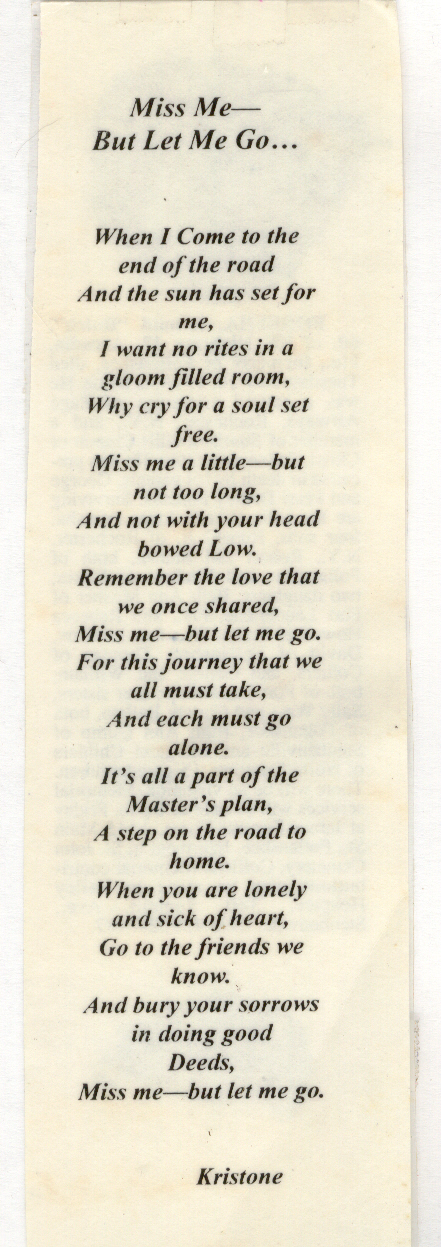 Miss Me—
But Let Me Go...
When I Come to the
end of the road
And the sun has set for
me,
I want no rites in a
gloom filled room,
Why cry for a soul set
free.
Miss me a little—but
not too long,
And not with your head
bowed Low.
Remember the love that
we once shared,
Miss me—but let me go.
For this journey that we
all must take,
And each must go
alone.
It's all a part of the
Master's plan,
A step on the road to
home.
When you are lonely
and sick of heart,
Go to the friends we
know.
And bury your sorrows
in doing good
Deeds,
Miss me—but let me go.
Kristone